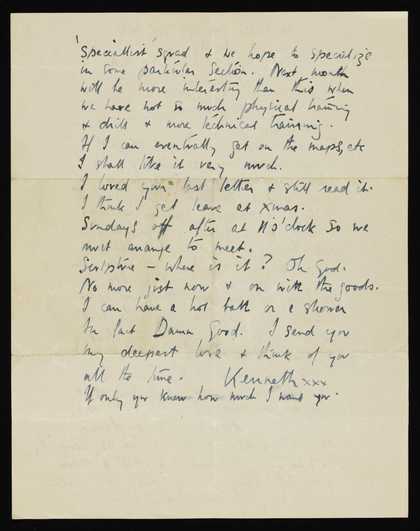 'Speciallist' squad & we hope to specialize
in some particular section. Next month
will be more interesting than this when
we have not so much physical training
& drill & more technical training.
If I can eventually get on the maps, etc
I shall like it very much.
I loved your last letter & still read it.
I think I get leave at Xmas.
Sundays off after at 11 o'clock so we
must arrange to meet.
Scripture – where is it? Oh God.
No more just now & on with the goods.
I can have a hot bath or a shower
In fact Damn Good. I send you
my deepest love & think of you
all the time. Kenneth xxx
If only you knew how much I want you.